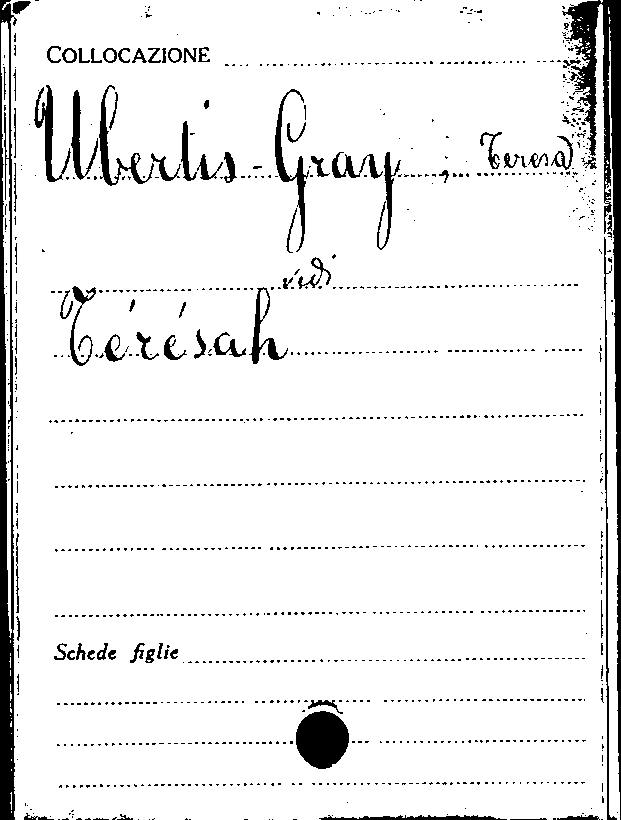 COLLOCAZIONE
Ubertis-Gray, Teresa
vidi
Térésah
Schede figlie